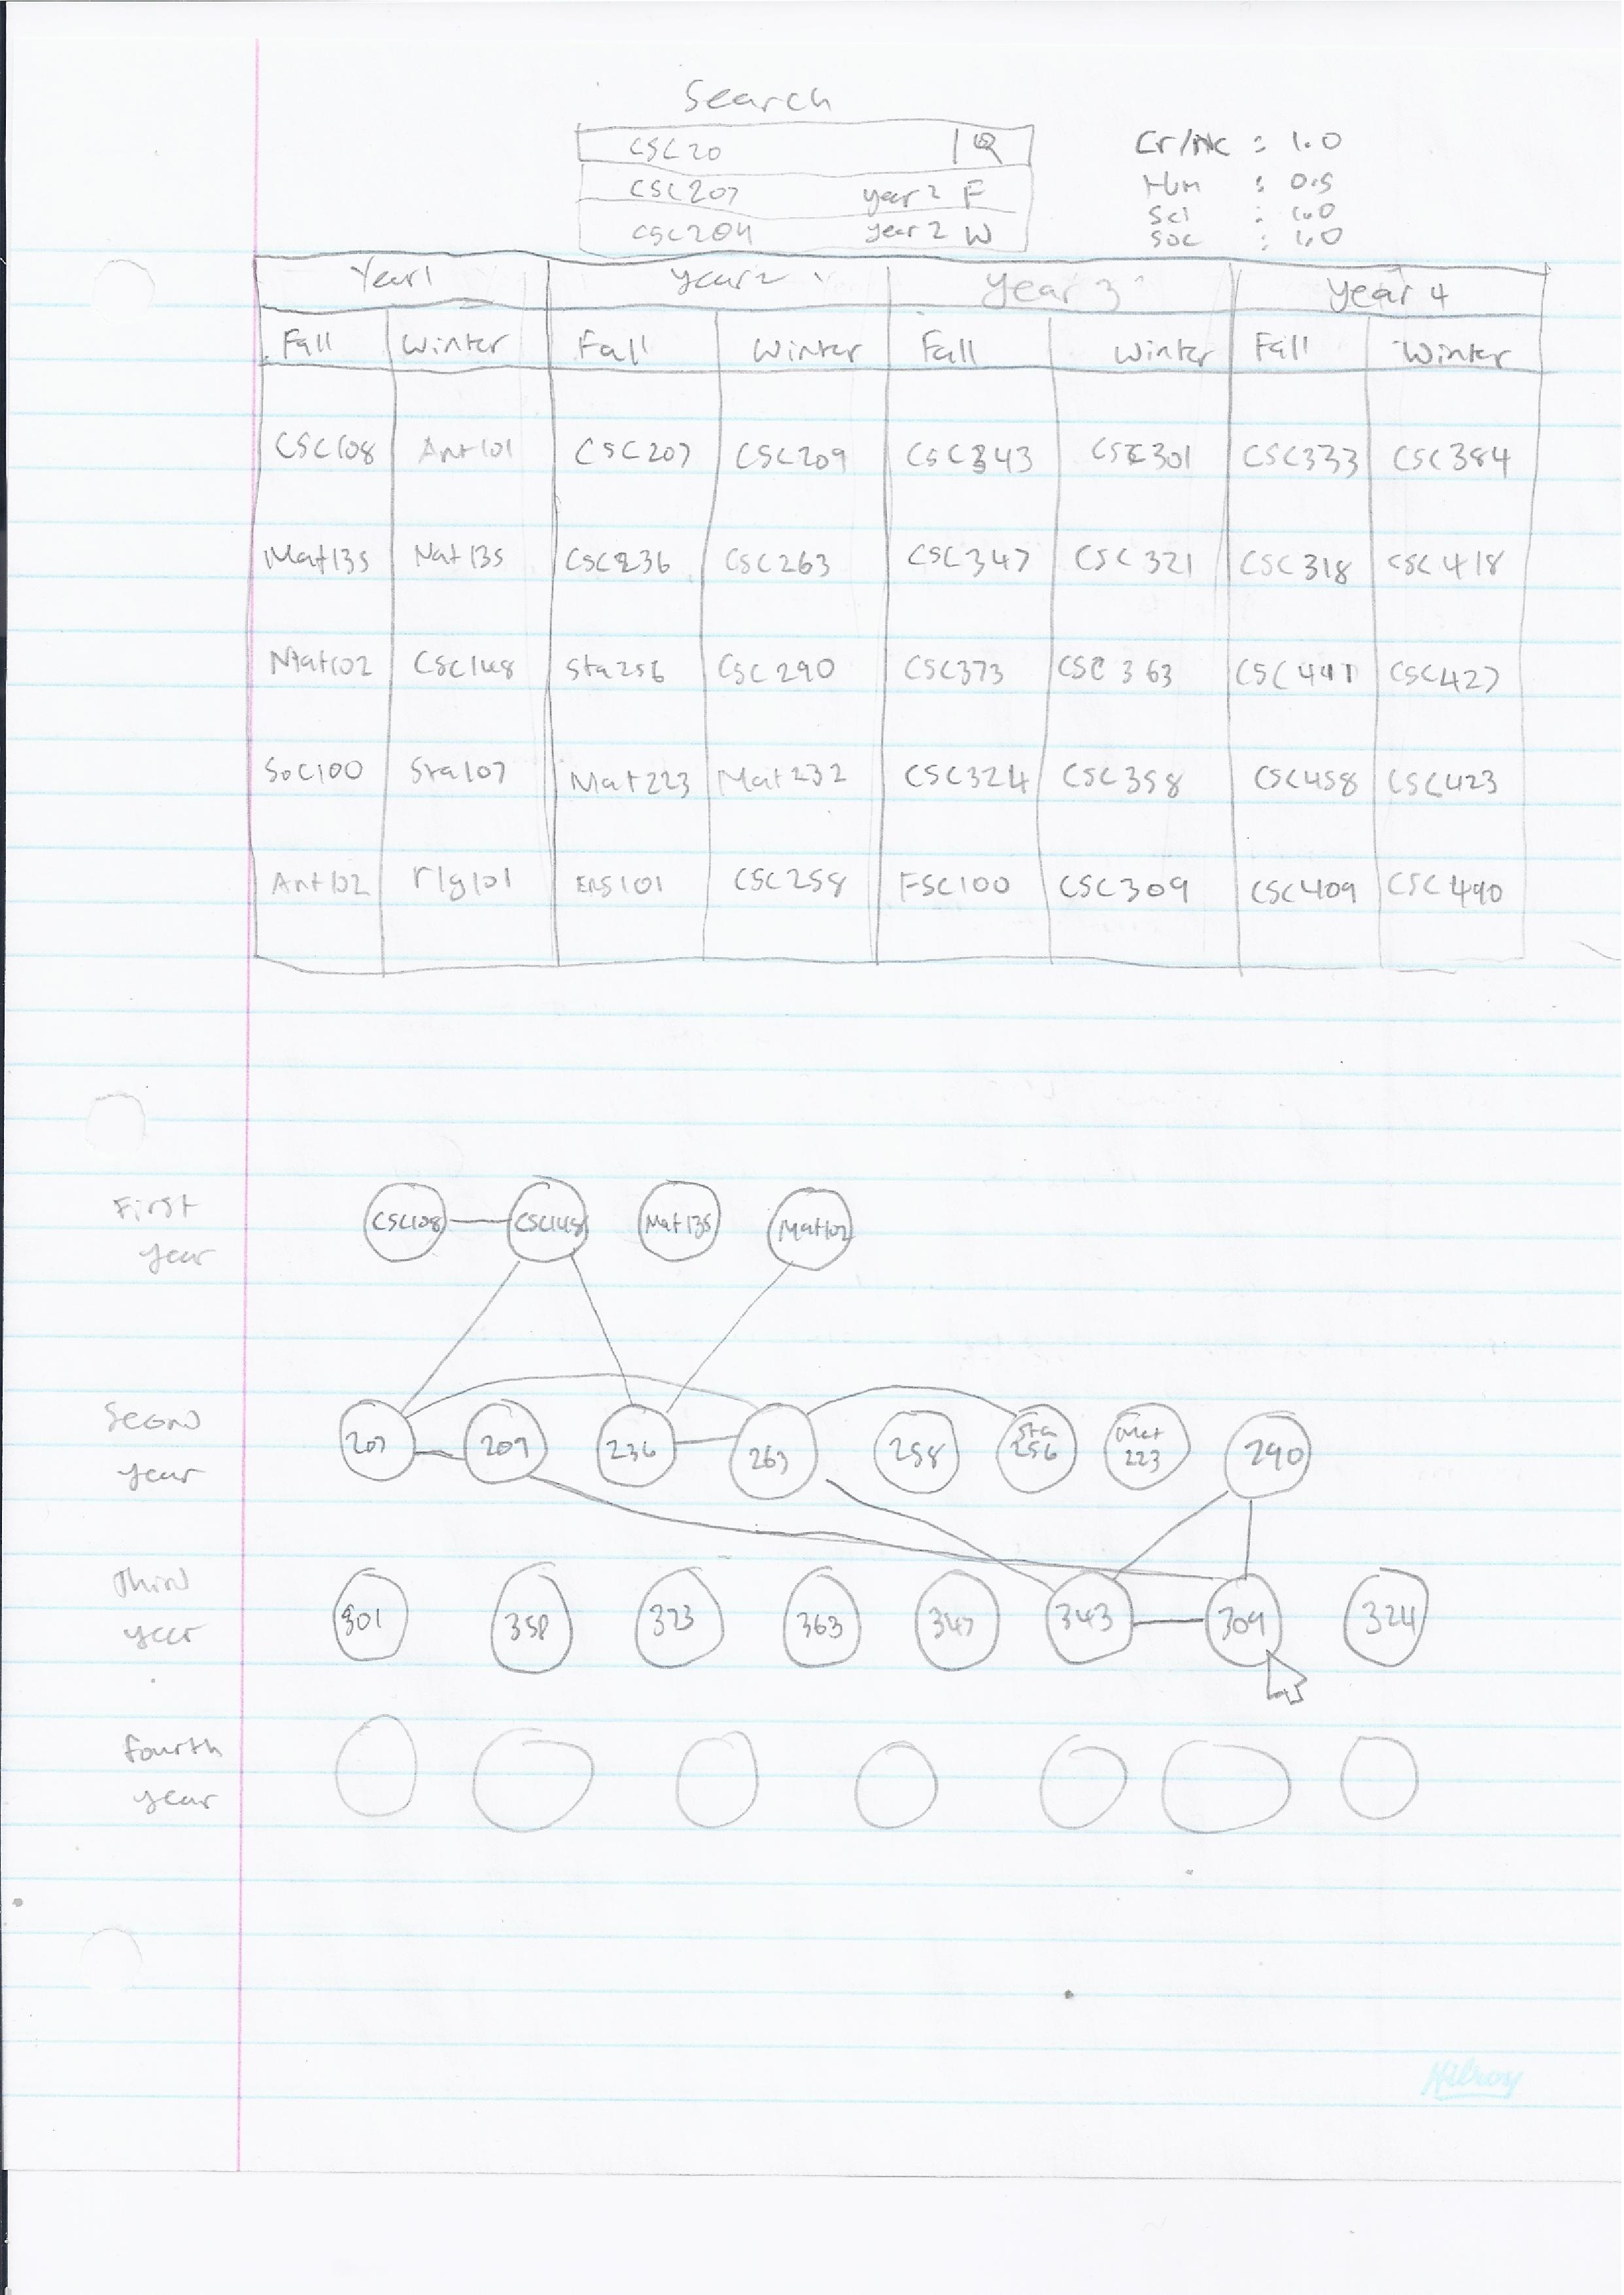 Search
CSC20
CSC207 year 2 F
CSC209 year 2 W
Cr/NC : 1.0
Hum : 0.5
Sci : 1.0
Soc : 1.0
Year1 Year2 Year 3 Year 4
Fall Winter Fall Winter Fall Winter Fall Winter
CSC108 Ant101 CSC207 CSC209 CSC343 CSC301 CSC333 CSC384
Mat135 Mat135 CSC236 CSC263 CSC347 CSC321 CSC318 CSC418
Mat102 CSC148 Sta256 CSC290 CSC373 CSC363 CSC427
Soc100 Sta107 Mat223 Mat232 CSC324 CSC358 CSC458 CSC423
Ant102 rlg101 CSC258 FSC100 CSC309 CSC409 CSC490
First year
CSC108 CSC148 Mat135 Mat102
Second year
207 209 236 263 258 Sta 256 Mat 223 290
Third year
301 358 363 347 343 309 324
fourth year
Hilroy